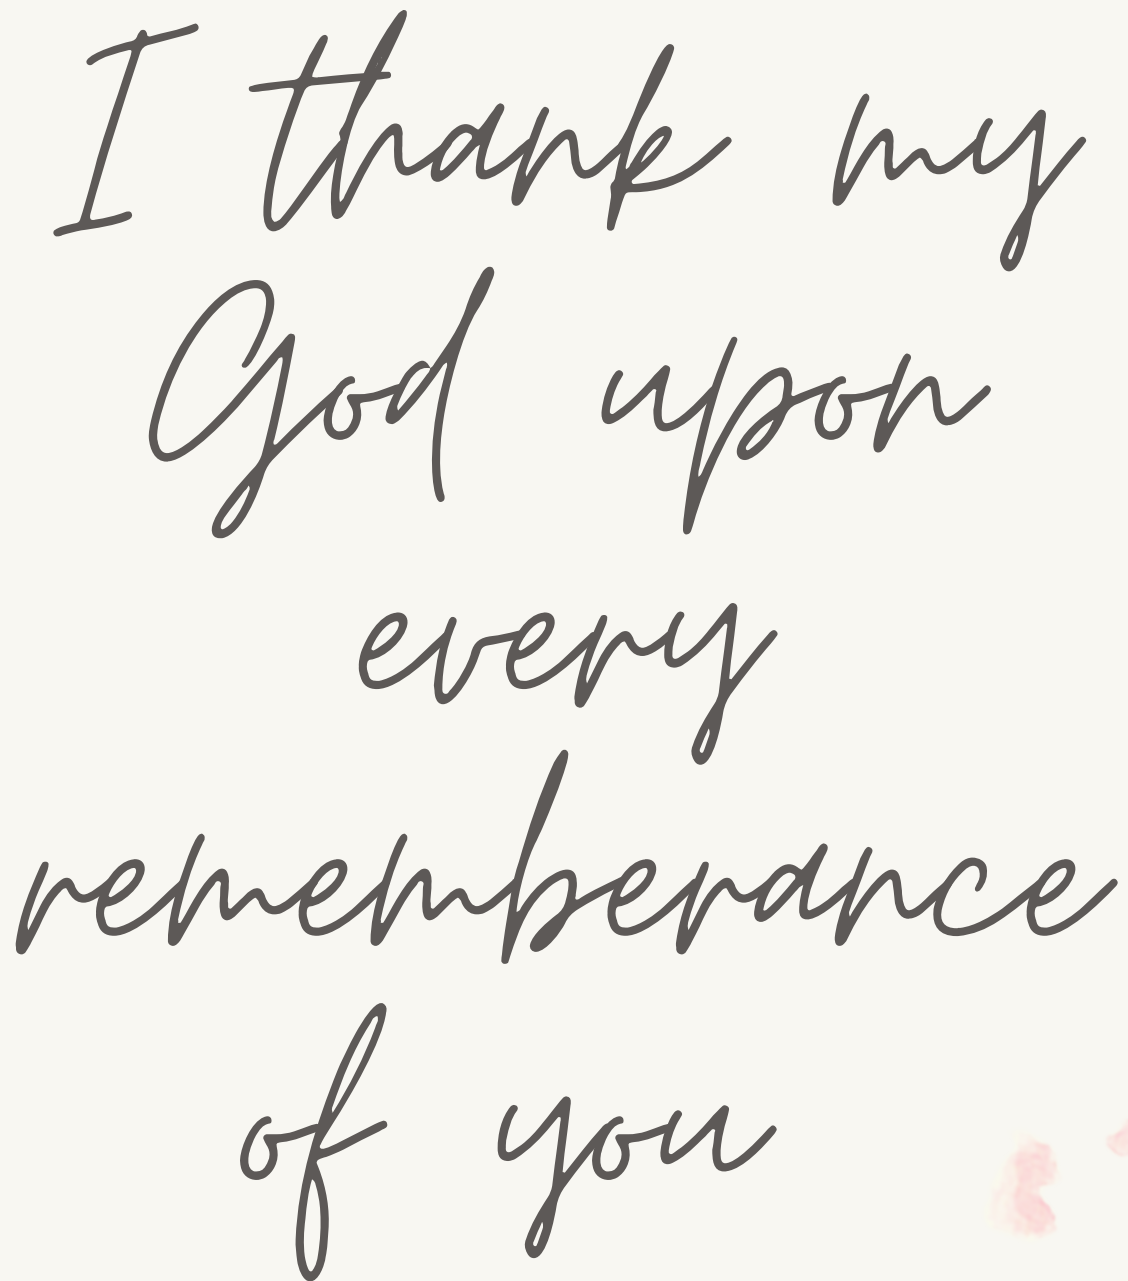 I thank my
God upon
every
rememberance
of you